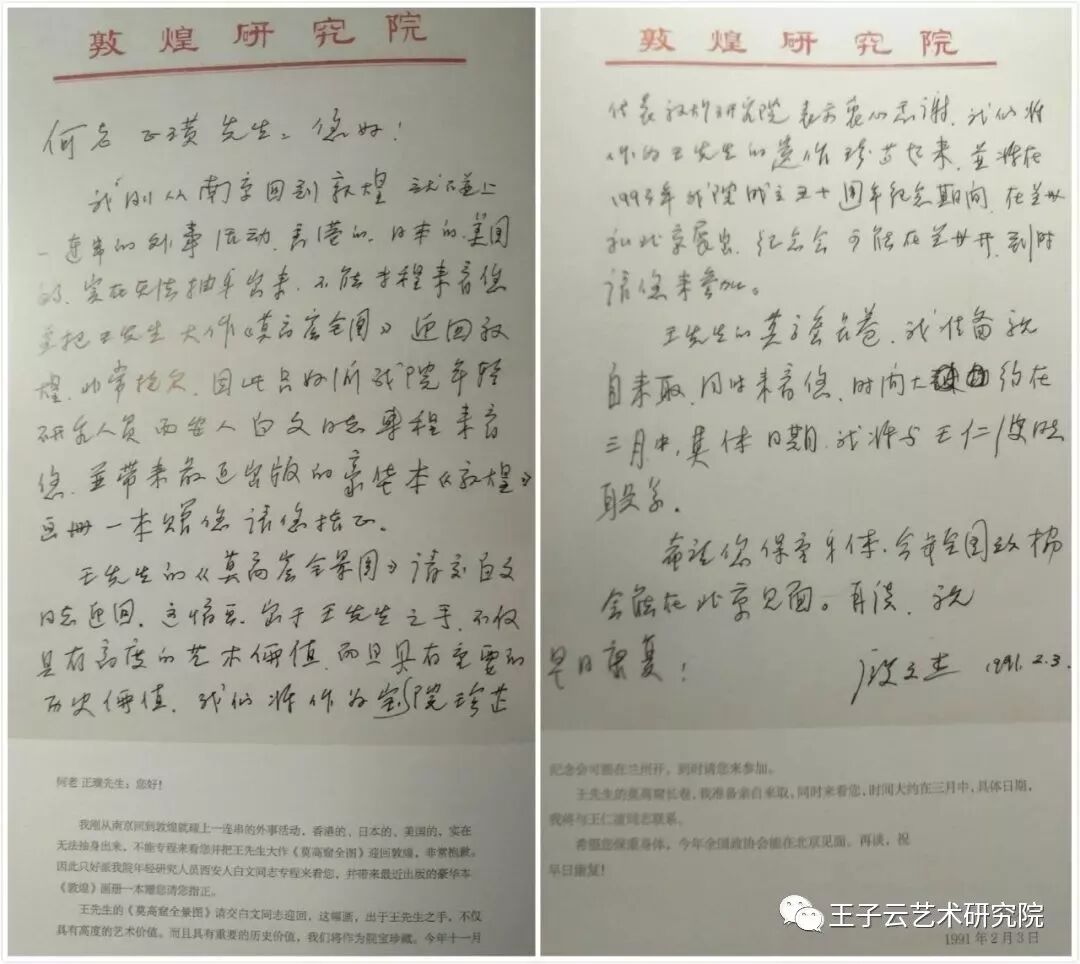 敦煌研究院
何老 正璜先生：您好！
我刚从南京回到敦煌就碰上
一连串的外事活动，香港的、日本的、美国
的，实在无法抽身出来，不能专程来看您
并把王先生大作《莫高窟全图》迎回敦
煌，非常抱欠，因此只好派我院年轻
研究人员西安人白文同志专程来看
您，並带来最近出版的豪华本《敦煌》
画册一本赠您请您指正。
王先生的《莫高窟全景图》请交白文
同志迎回，这幅画，出于王先生之手，不仅
具有高度的艺术価值，而且具有重要的
历史価值，我们将作为
何老 正璜先生：您好！
我刚从南京回到敦煌就碰上一连串的外事活动，香港的、日本的、美国的，实在
无法抽身出来，不能专程来看您并把王先生大作《莫高窟全图》迎回敦煌，非常抱歉。
因此只好派我院年轻研究人员西安人白文同志专程来看您，并带来最近出版的豪华本
《敦煌》画册一本赠您请您指正。
王先生的《莫高窟全景图》请交白文同志迎回，这幅画，出于王先生之手，不仅
具有高度的艺术价值。而且具有重要的历史价值，我们将作为院宝珍藏。今年十一月
敦煌研究院
代表敦煌研究院表示衷心感谢，我们将
作为王先生的遗作珍藏起来，並将在
年我院成立五十周年纪念期间，在兰州
和北京展出，纪念会可能在兰州开，到时
请您来参加。
王先生的莫高窟长卷，我准备亲
自来取，同时来看您，时间大约在
三月中，具体日期，我将与王仁波同志
联系。
希望您保重身体，今年全国政协
会能在北京见面。再谈，祝
早日康复！
段文杰 1991.2.3.
纪念会可能在兰州开，到时请您来参加。
王先生的莫高窟长卷，我准备亲自来取，同时来看您，时间大约在三月中，具体日期，
我将与王仁波同志联系。
希望您保重身体，今年全国政协会能在北京见面。再谈，祝
早日康复！
1991年2月3日
王子云艺术研究院